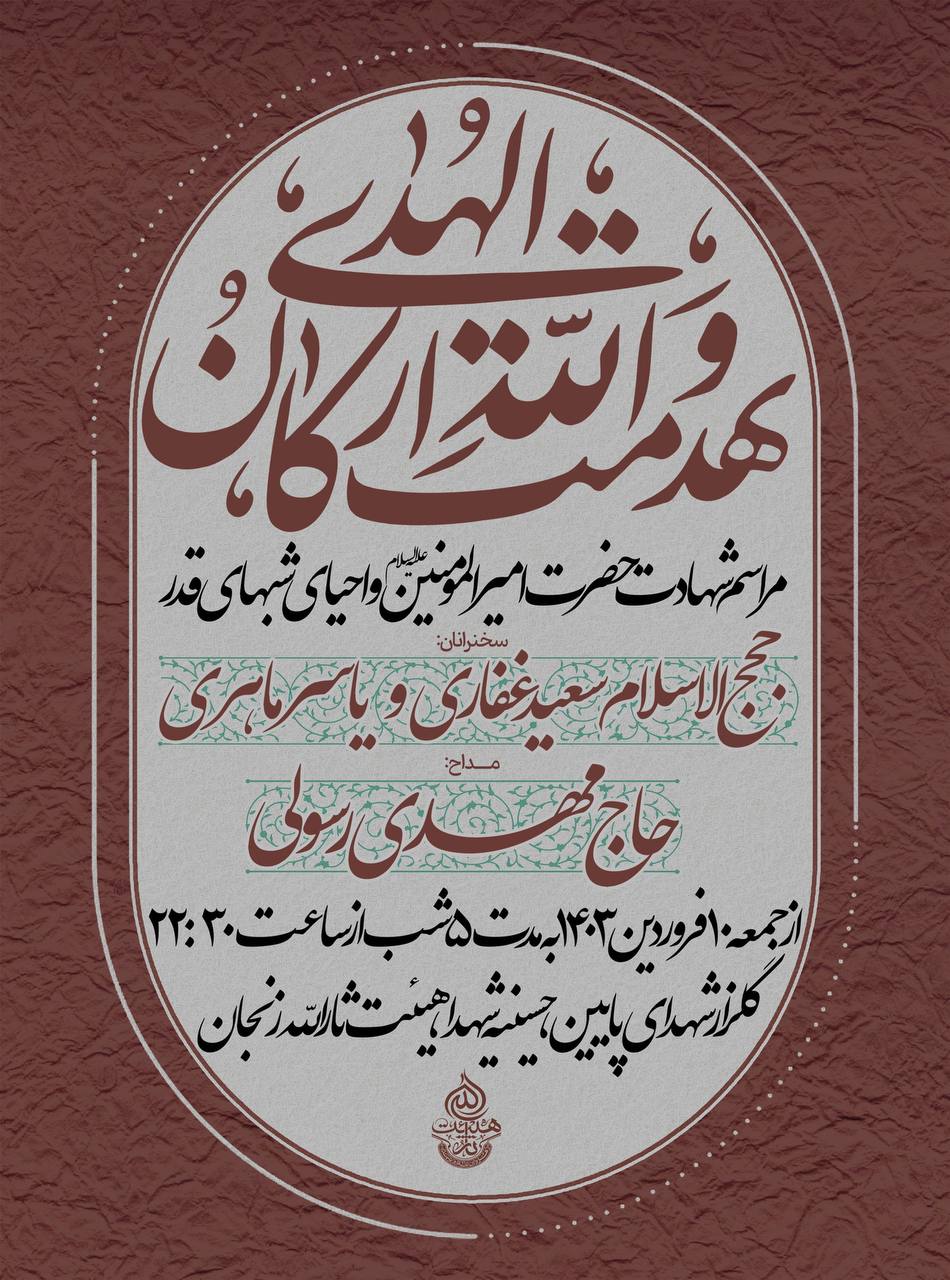 تهدمت والله ارکانُ الهُدی
مراسم شهادت حضرت امیرالمومنین علیه‌السلام و احیای شبهای قدر
سخنرانان:
حجج الاسلام سعید غفاری و یاسر ماهری
مداح:
حاج مهدی رسولی
از جمعه ۱۰ فروردین ۱۴۰۳ به مدت ۵ شب از ساعت ۲۲:۳۰
گلزار شهدای پایین، حسینیه شهدا، هیئت ثارالله زنجان
هیئت ثارالله